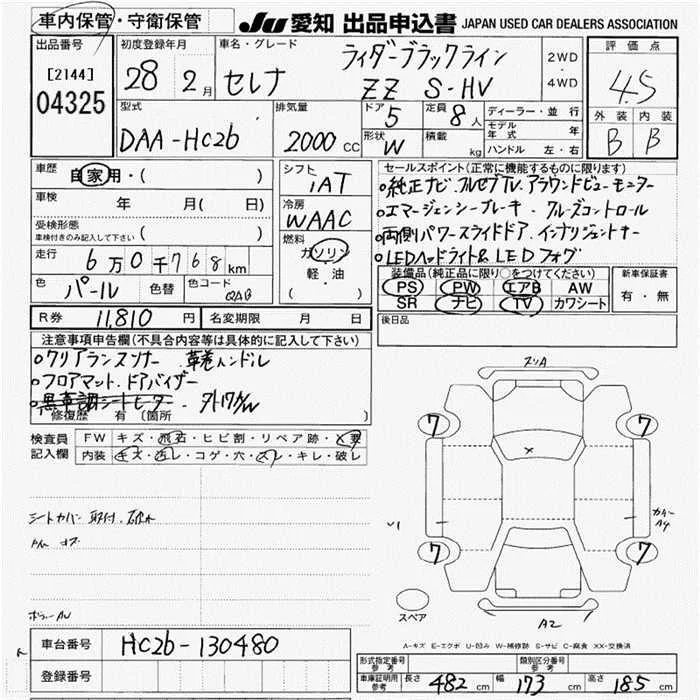 車内保管・守衛保管
JU 愛知 出品申込書 JAPAN USED CAR DEALERS ASSOCIATION
出品番号
[2144]
04325
初度登録年月
28 2月
車名・グレード
セレナ
ライダーブラックライン
ZZ S-HV
2WD
・
4WD
評価点
4.5
外装 内装
B B
型式
DAA-HC26
排気量
2000 CC
ドア
5
定員
8人
形状
W
積載
kg
ディーラー・並行
モデル年式 年
ハンドル 左・右
車歴
自家用・( )
車検
年 月( 日)
受検形態
車検付きのみ記入して下さい ( )
走行
6万0千768km
色
パール
色替
色コード
QAB
R券
11,810 円
名変期限 月 日
シフト
IAT
冷房
WAAC
燃料
ガソリン
軽・油
( )
セールスポイント(正常に機能するものに限ります)
○純正ナビ.フルセグTV.アラウンドビューモニター
○エマージェンシーブレーキ.クルーズコントロール
○両側パワースライドドア.インテリジェントキー
○LEDヘッドライト& LEDフォグ
装備品(純正品に限り○をつけてください)
PS PW エアB AW
SR ナビ TV カワシート
新車保証書
有・無
後日品
注意事項申告欄(不具合内容等は具体的に記入して下さい)
○クリアランスソナー 革巻ハンドル
○フロアマット.ドアバイザー
修復歴 有 〔箇所 〕
検査員
記入欄
FW キズ・飛石・ヒビ割・リペア跡・X要
内装 キズ・汚レ・コゲ・穴・スレ・キレ・破レ
シートカバー 取付.
スリA
7
7
7
7
X
A2
スペア
A-キズ E-エクボ U-凹み W-補修跡 S-サビ C-腐食 XX-交換済
車台番号
HC26-130480
登録番号
形式指定番号
参考
類別区分番号
参考
車庫証明用
参考
長さ 482 cm 幅 173 cm 高さ 185 cm